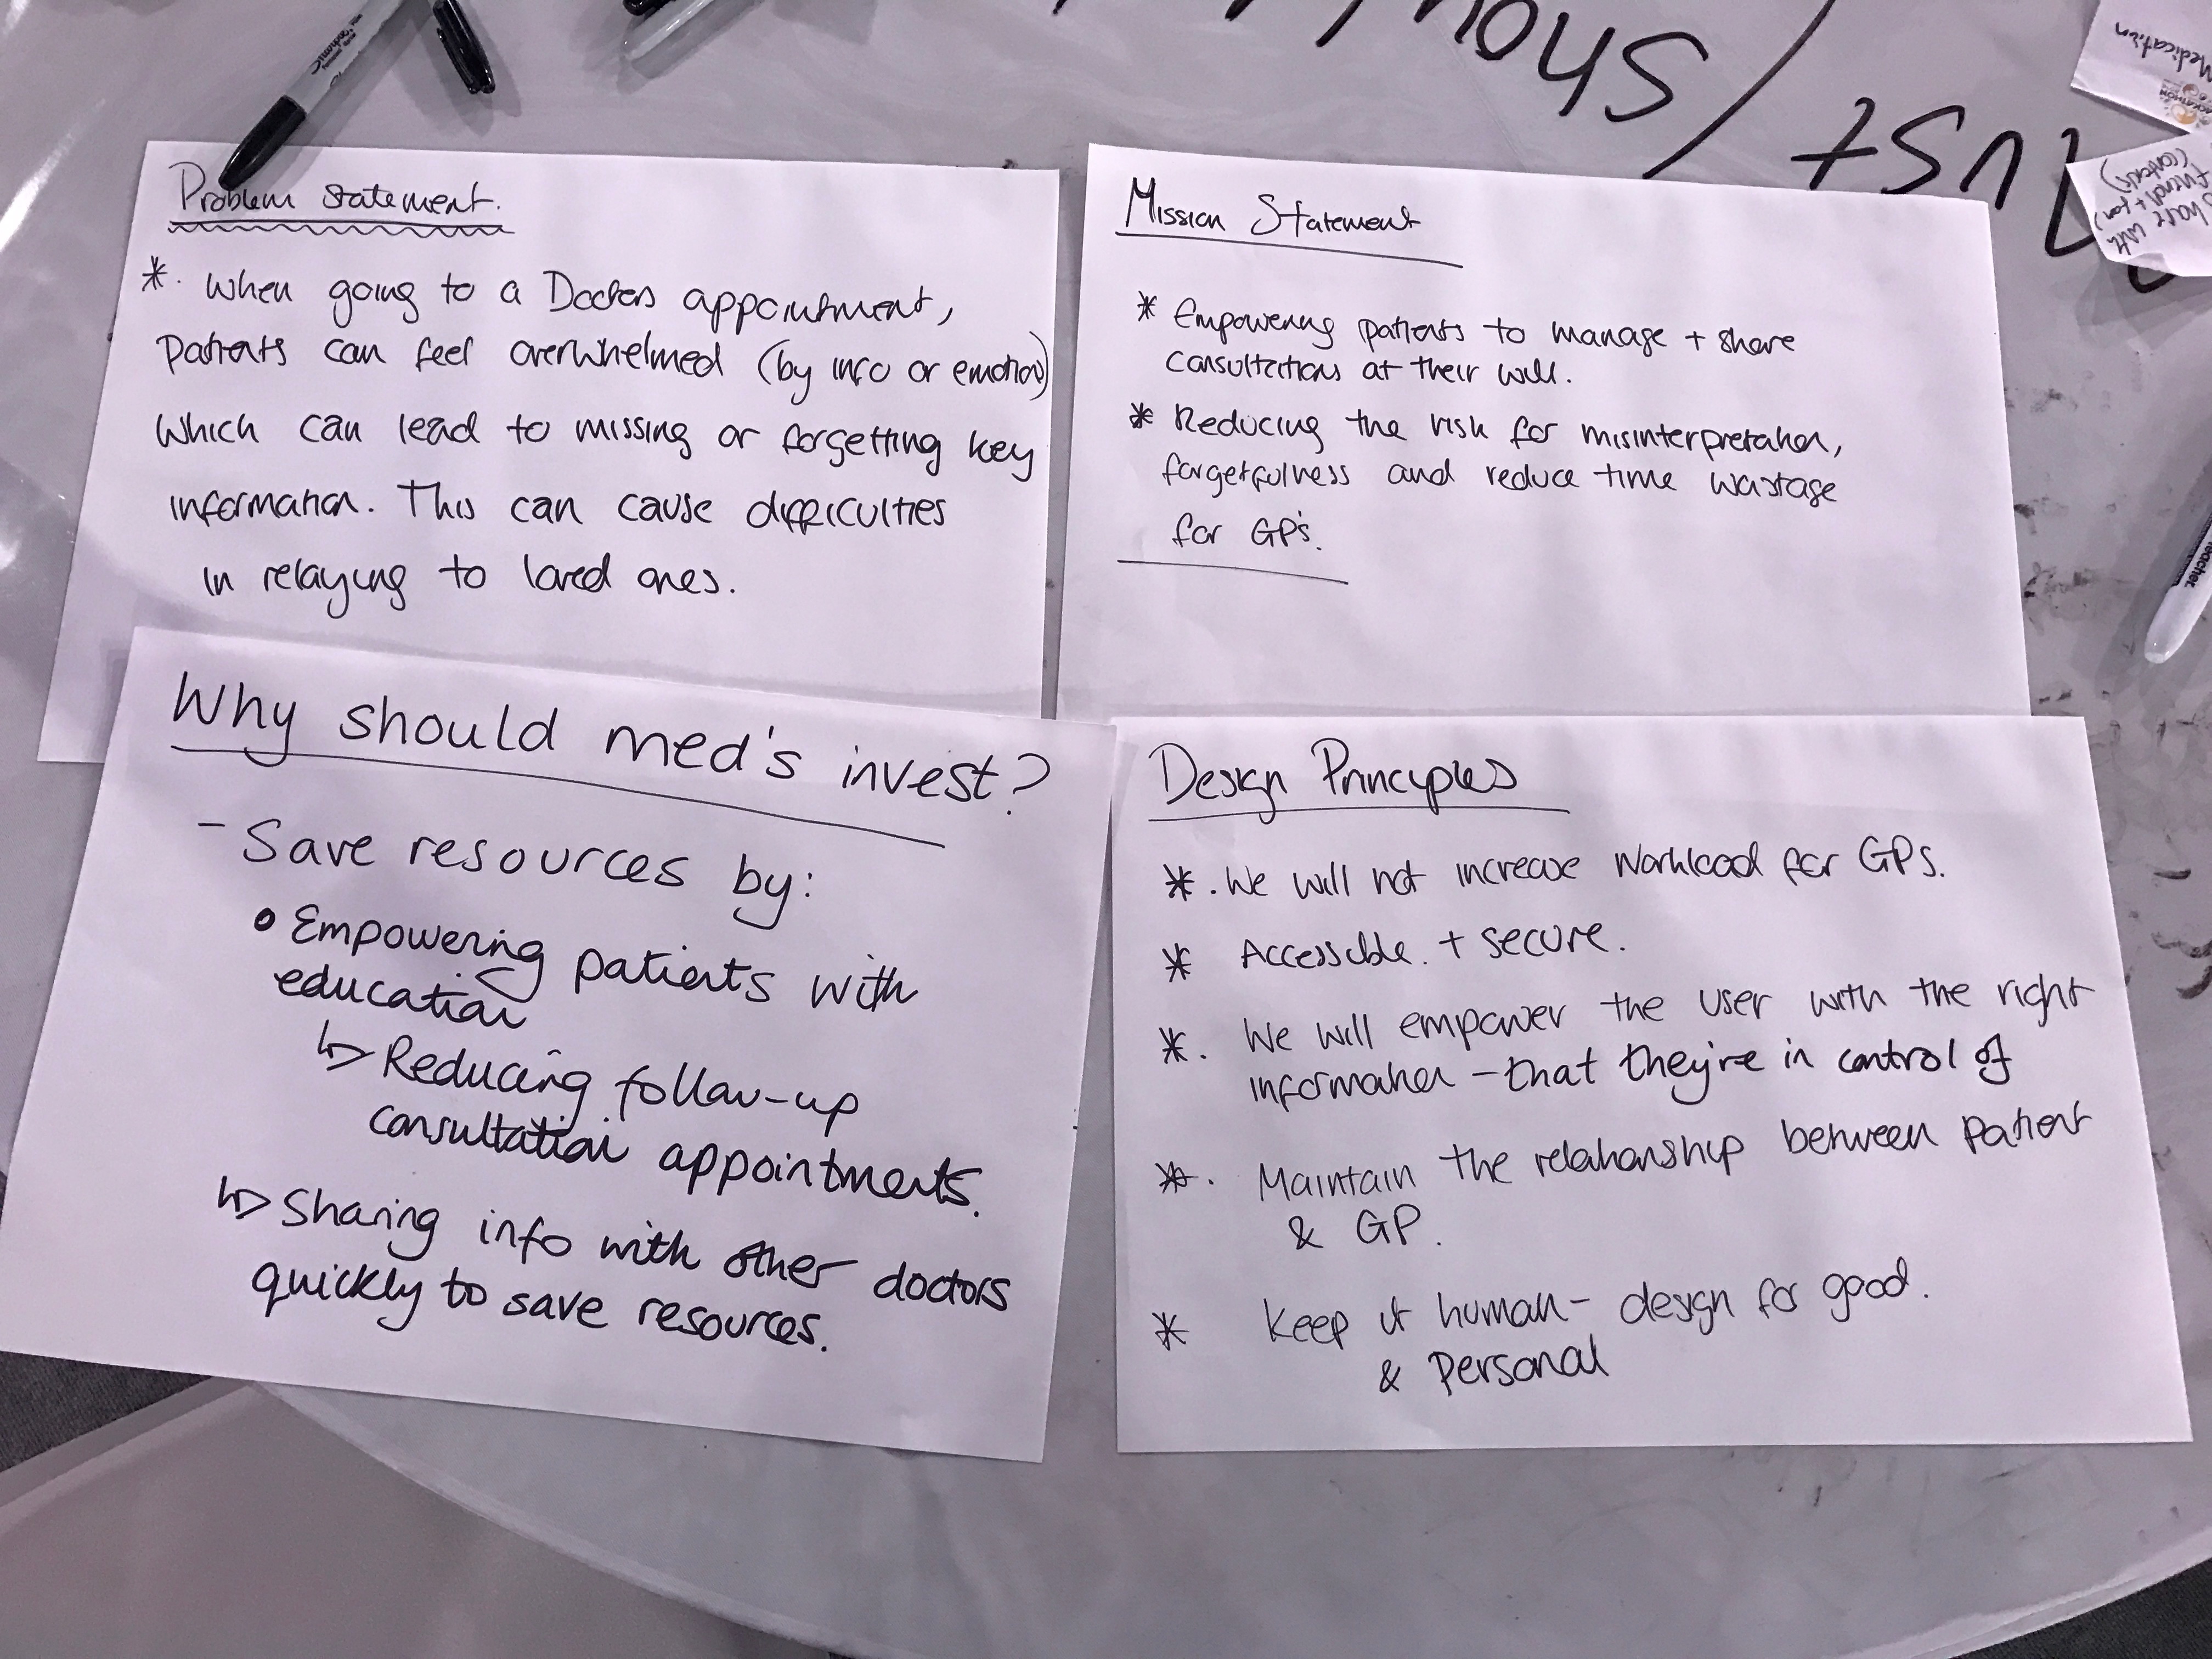 Problem Statement.
*. When going to a Doctors appointment,
Patients can feel overwhelmed (by info or emotion)
Which can lead to missing or forgetting key
information. This can cause difficulties
in relaying to loved ones.
Mission Statement
* Empowering patients to manage + share
consultations at their will.
* Reducing the risk for misinterpretation,
forgetfulness and reduce time wastage
for GP's.
Why should med's invest?
- Save resources by:
• Empowering patients with
education
↳ Reducing follow-up
consultation appointments.
↳ Sharing info with other doctors
quickly to save resources.
Design Principles
*. We will not increase workload for GPs.
* Accessible. + secure.
*. We will empower the user with the right
information - that they're in control of
*. Maintain the relationship between patient
& GP.
* Keep it human - design for good.
& Personal
Medication
Share with